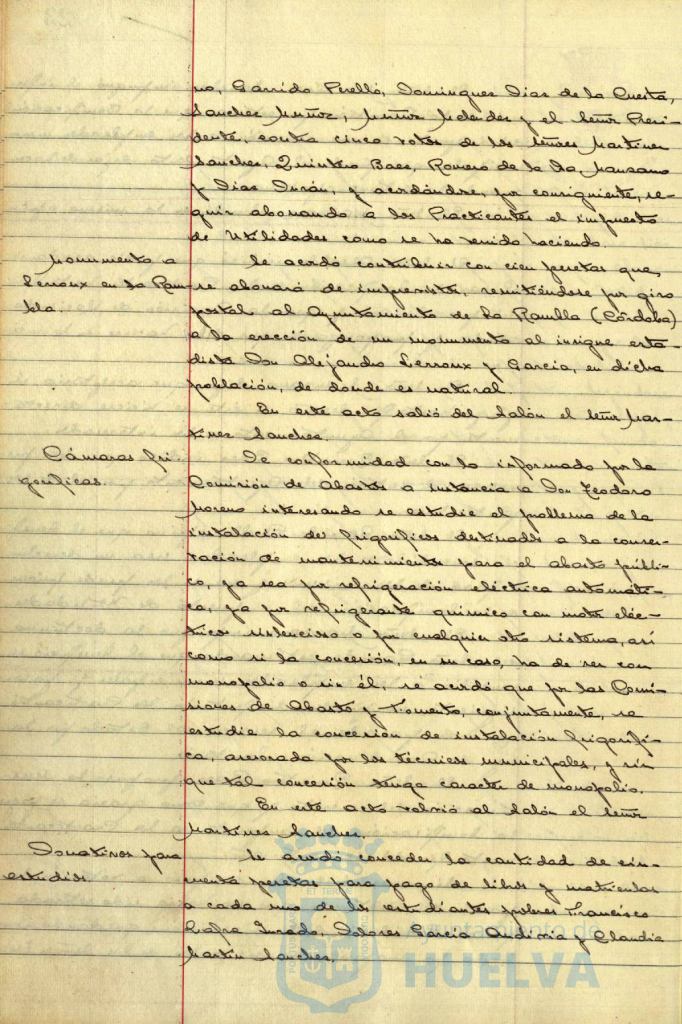 no, Garrido Perelló, Dominguez Diaz de la Cuesta,
Sanchez Muñoz, Muñoz Melendez y el Señor Presi-
dente, contra cinco votos de los señores Martinez
Sanchez, Quintero Baez, Romero de la Manzano
y Diaz Durán, y acordándose, por consiguiente, se-
guir abonando a los Practicantes el impuesto
de Utilidades como se ha venido haciendo.
Monumento a
Lerroux en La Ram-
bla.
Se acordó contribuir con cien pesetas que,
se abonará de imprevistos, remitiéndose por giro
postal al Ayuntamiento de La Rambla (Córdoba)
a la erección de un monumento al insigne esta-
dista Don Alejandro Lerroux y Garcia, en dicha
población, de donde es natural.
En este acto salió del Salón el Señor Mar-
tinez Sanchez.
Cámaras fri-
gorificas.
De conformidad con lo informado por la
Comisión de Abastos a instancia a Don Teodoro
Moreno interesando se estudie el problema de la
instalación de frigorificos destinados a la conser-
vación de mantenimientos para el abasto públi-
co, ya sea por refrigeración eléctrica automáti-
ca, ya por refrigerante quimico con motor eléc-
trico silencioso o por cualquier otro sistema, asi
como si la concesión, en su caso, ha de ser con
monopolio o sin él, se acordó que por las Comi-
siones de Abasto y Fomento, conjuntamente, se
estudie la concesión de instalación frigorifi-
ca, asesorada por los técnicos municipales, y sin
que tal concesión tenga caracter de monopolio.
En este acto volvió al Salón el Señor
Martinez Sanchez.
Donativos para
estudios.
Se acordó conceder la cantidad de cin-
cuenta pesetas para pago de libros y matriculas
a cada uno de los estudiantes pobres Francisco
Jurado, Dolores Garcia y Claudio
Martin Sanchez.
Ayuntamiento de
HUELVA